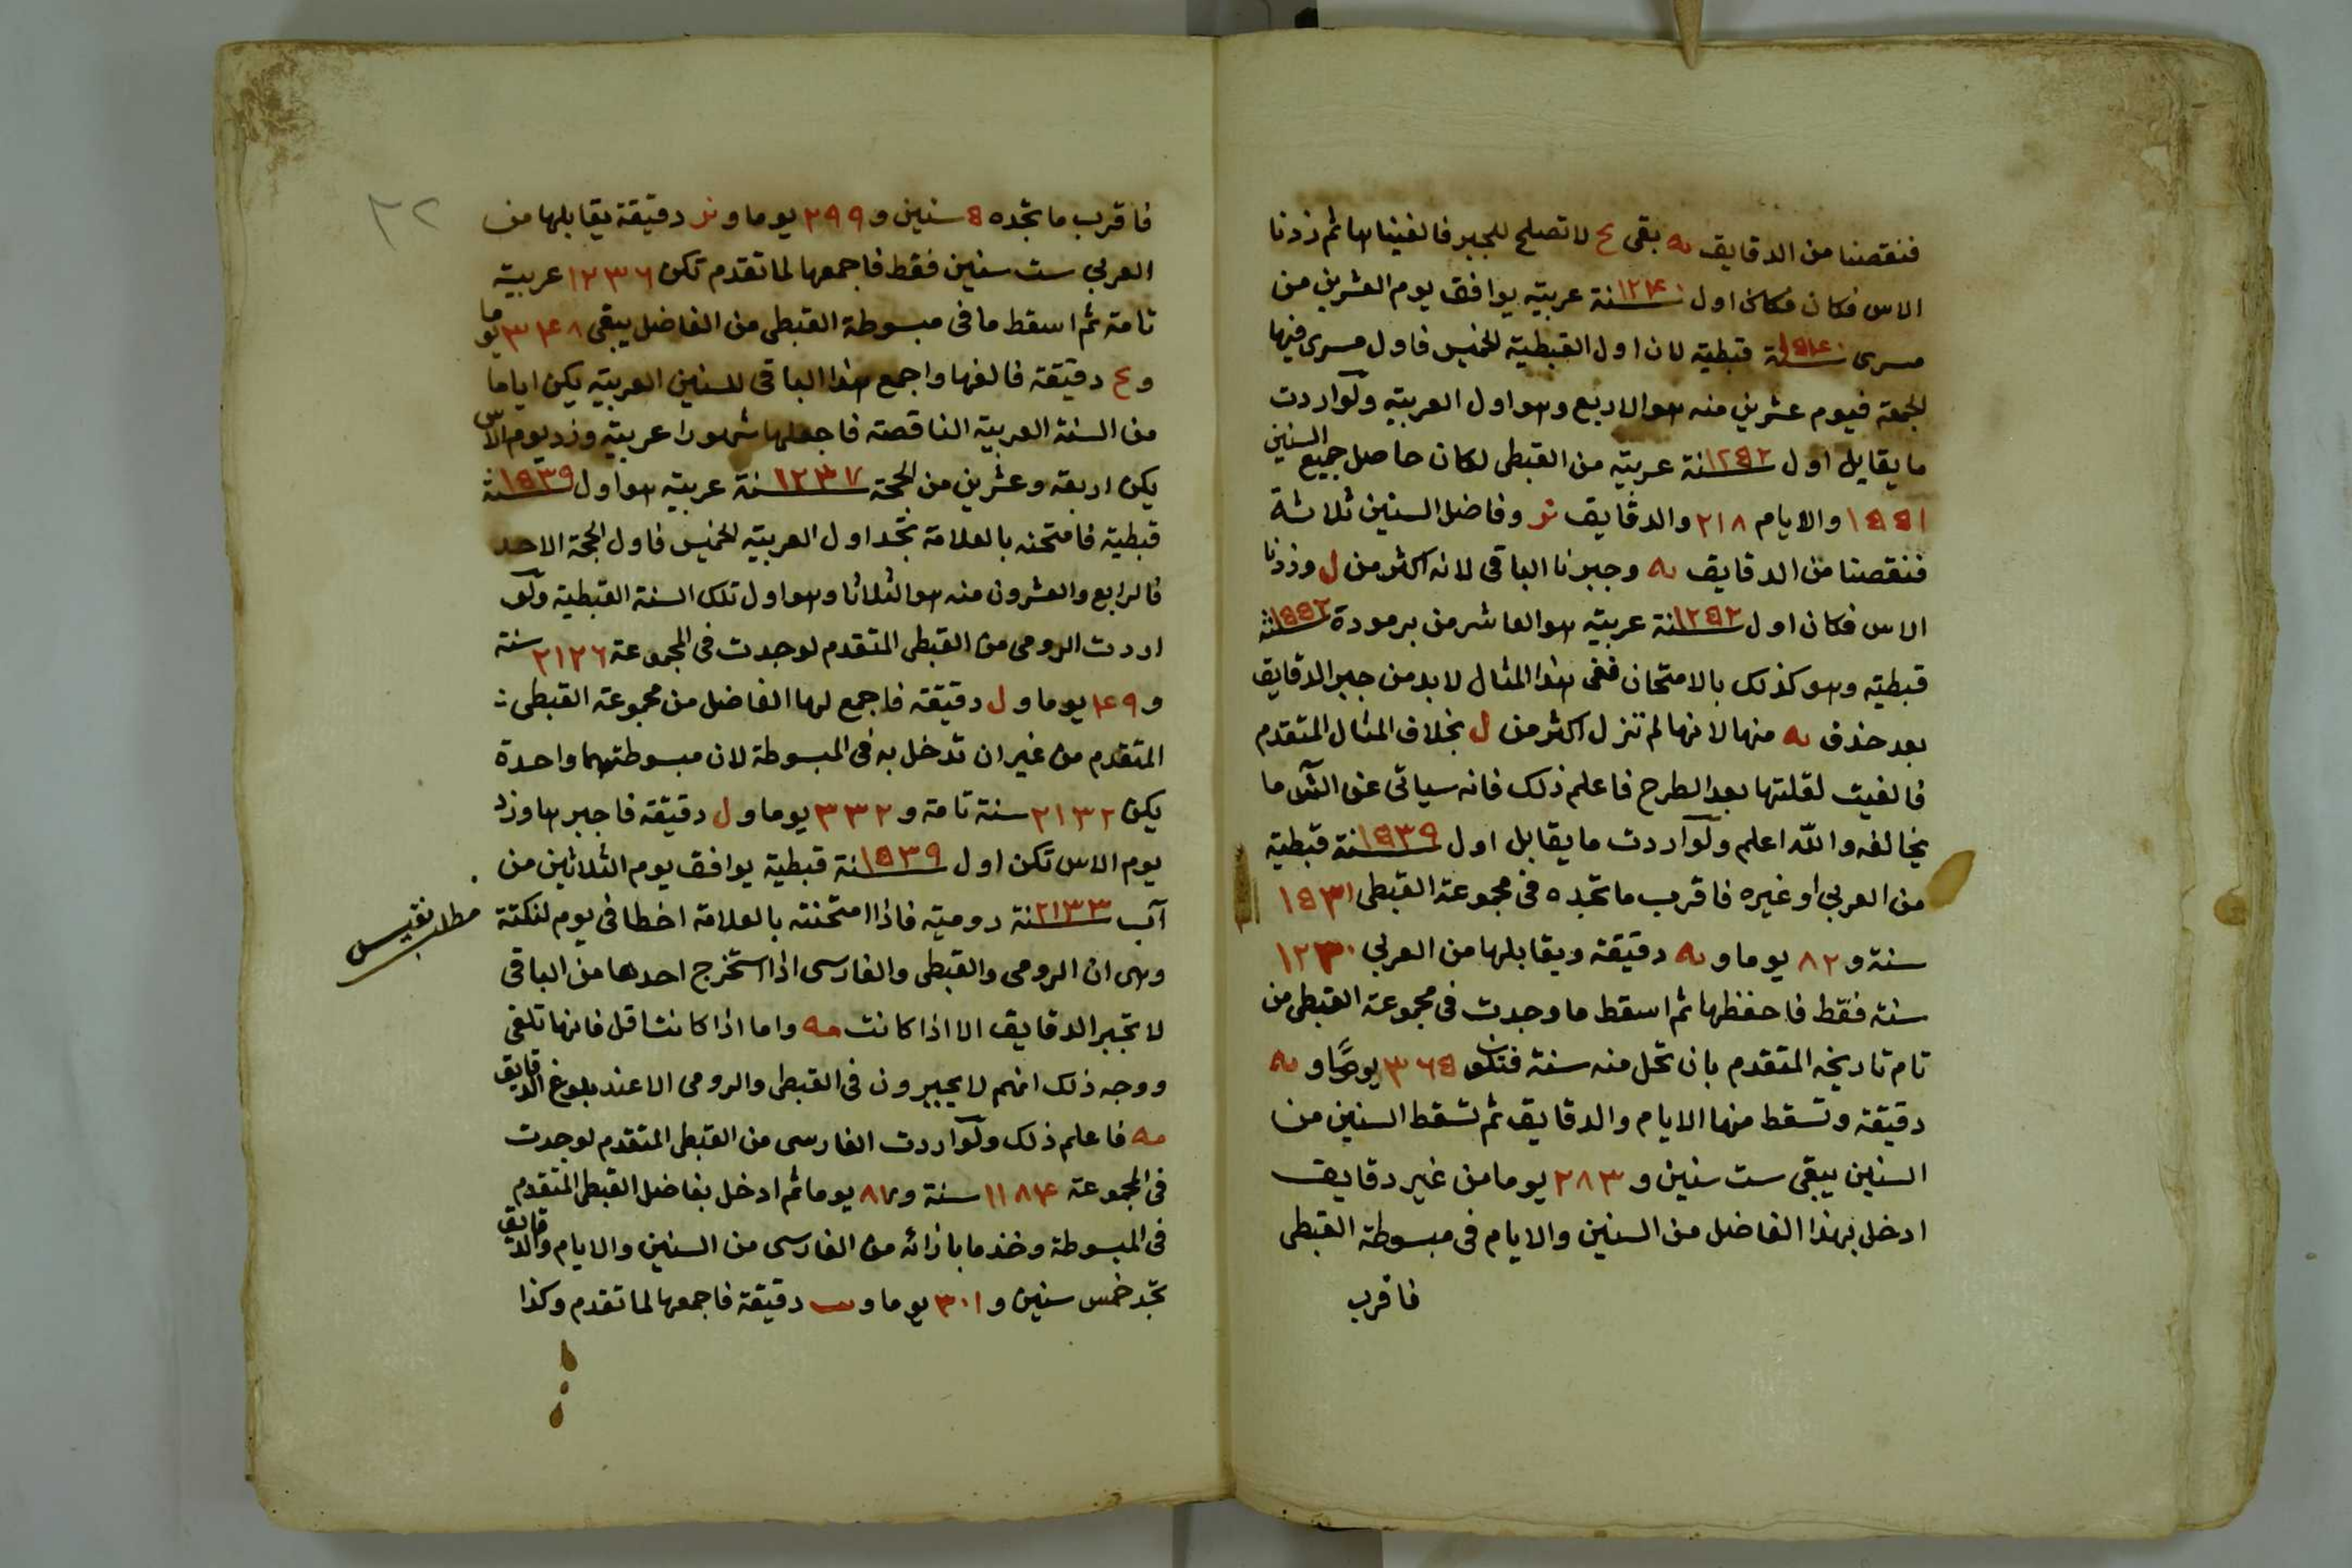 فنقصنا من الدقايق ىه بقى ع لا تصلح للجبر فالغيناها ثم زدنا
الاس فكان فكان اول ١٢٤٠ سنة عربيته يوافق يوم العشرين من
مسرى ١٥٤٠ سنة قبطيته لان اول القبطيته الخميس فاول مسرى فيها
الجمعة فيوم عشرين منه هو الاربع وهو اول العربيته ولو اردت
ما يقابل اول ١٢٥٢ سنة عربيته من القبطى لكان حاصل جميع السنين
١٥٥١ والايام ٢١٨ والدقايق نر وفاضل السنين ثلاثة
فنقصنا من الدقايق ىه وجبرنا الباقى لانه اكثر من ل وزدنا
الاس فكان اول ١٢٥٢ سنة عربيته هو العاشر من برمودة ١٥٥٢ سنة
قبطيته وهو كذلك بالامتحان ففى هذا المثال لا بد من جبر الدقايق
بعد حذف ىه منها لانها لم تنزل اكثر من ل بخلاف المثال المتقدم
فالغيت لقلتها بعد الطرح فاعلم ذلك فانه سياتى عن الش ما
يخالفه والله اعلم ولو اردت ما يقابل اول ١٥٣٩ سنة قبطيته
من العربي او غيره فاقرب ما تجده فى مجموعة القبطى ١٥٣١
سنة و ٨٢ يوما و ىه دقيقة ويقابلها من العربي ١٢٣٠
سنة فقط فاحفظها ثم اسقط ما وجدت فى مجموعة القبطى من
تام تاريخه المتقدم بان تحل منه سنة فتكون ٣٦٥ يوما و ىه
دقيقة وتسقط منها الايام والدقايق ثم تسقط السنين من
السنين يبقى ست سنين و ٢٨٣ يوما من غير دقايق
ادخل بهذا الفاضل من السنين والايام فى مبسوطة القبطى
فاقرب
٣٢
فاقرب ما تجده ٥ سنين و ٢٩٩ يوما و نر دقيقة يقابلها من
العربي ست سنين فقط فاجمعها لما تقدم تكن ١٢٣٦ عربيته
تامة ثم اسقط ما فى مبسوطة القبطى من الفاضل يبقى ٣٤٨ يوما
و ع دقيقة فالغها واجمع هذا الباقى للسنين العربيته يكن اياما
من السنة العربيته الناقصة فاجعلها شهورا عربيته وزد يوم الاس
يكن اربعة وعشرين من الحجة ١٢٣٧ سنة عربيته هو اول ١٥٣٩ سنة
قبطية فامتحنه بالعلامة تجد اول العربيته الخميس فاول الحجة الاحد
فالرابع والعشرون منه هو الثلاثا وهو اول تلك السنة القبطية ولو
اردت الرومى من القبطى المتقدم لوجدت فى المجموعة ٢١٢٦ سنة
و ٤٩ يوما و ل دقيقة فاجمع لها الفاضل من مجموعة القبطى :
المتقدم من غير ان تدخل به فى المبسوطة لان مبسوطتهما واحدة
يكن ٢١٣٢ سنة تامة و ٣٣٢ يوما و ل دقيقة فاجبرها وزد
يوم الاس تكن اول ١٥٣٩ سنة قبطية يوافق يوم الثلاثين من
آب ٢١٣٣ سنة روميته فاذا امتحنته بالعلامة اخطا فى يوم لنكتة
مطلب نفيس
وهى ان الرومى والقبطى والفارسى اذا استخرج احدها من الباقى
لا تجبر الدقايق الا اذا كانت مه واما اذا كانت اقل فانها تلغى
ووجه ذلك انهم لا يجبرون فى القبطى والرومى الا عند بلوغ الدقايق
مه فاعلم ذلك ولو اردت الفارسى من القبطى المتقدم لوجدت
فى المجموعة ١١٨٤ سنة و ٨٧ يوما ثم ادخل بفاضل القبطى المتقدم
فى المبسوطة وخذ ما بازائه من الفارسى من السنين والايام والدقايق
تجد خمس سنين و ٣٠١ يوما و دقيقة فاجمعها لما تقدم وكذا